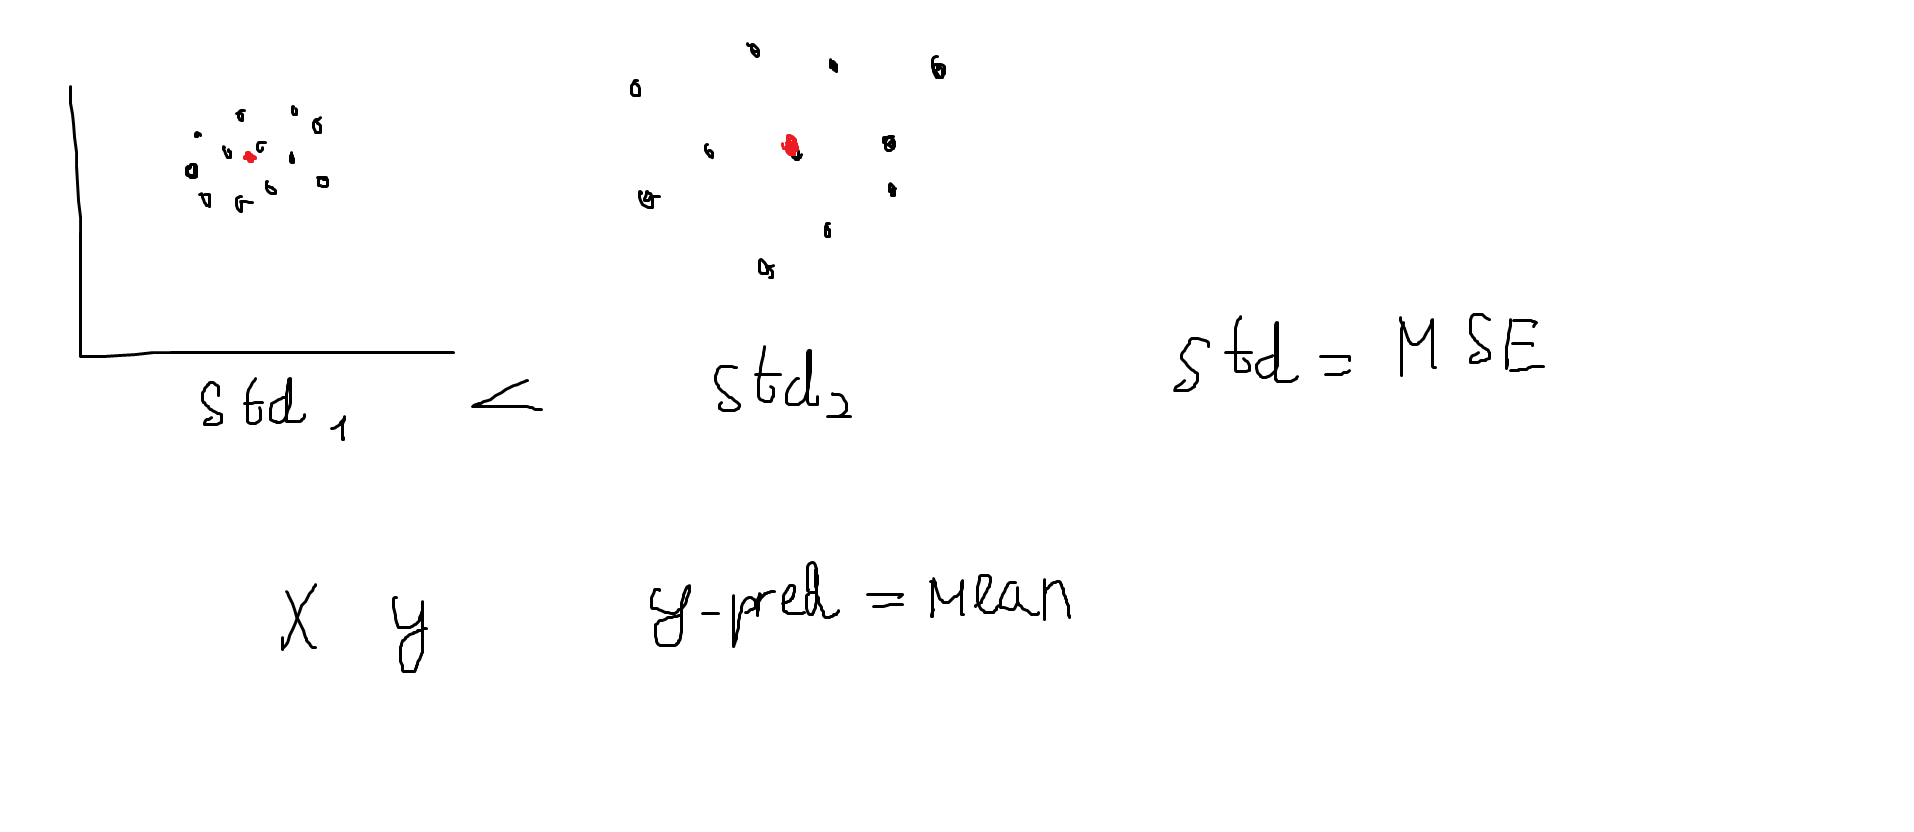 std₁ < std₂
std = MSE
X y
y-pred = Mean